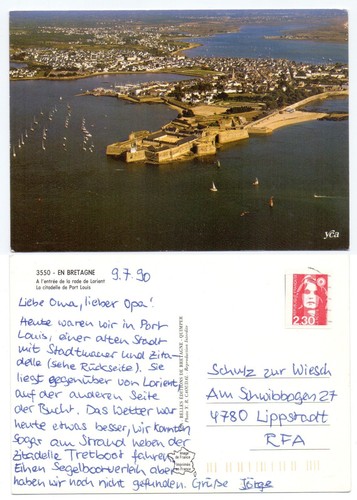 yca
3550 - EN BRETAGNE
A l'entrée de la rade de Lorient
La citadelle de Port Louis
9.7.90
Liebe Oma, lieber Opa!
Heute waren wir in Port
Louis, einer alten Stadt
mit Stadtmauer und Zita
delle (siehe Rückseite). Sie
liegt gegenüber von Lorient
auf der anderen Seite
der Bucht. Das Wetter war
heute etwas besser, wir konnten
sogar am Strand neben der
Zitadelle Tretboot fahren.
Einen Segelbootverleih aber
haben wir noch nicht gefunden. Grüße
2.30
Schulz zur Wiesch
Am Schwibbogen 27
4780 Lippstadt
RFA